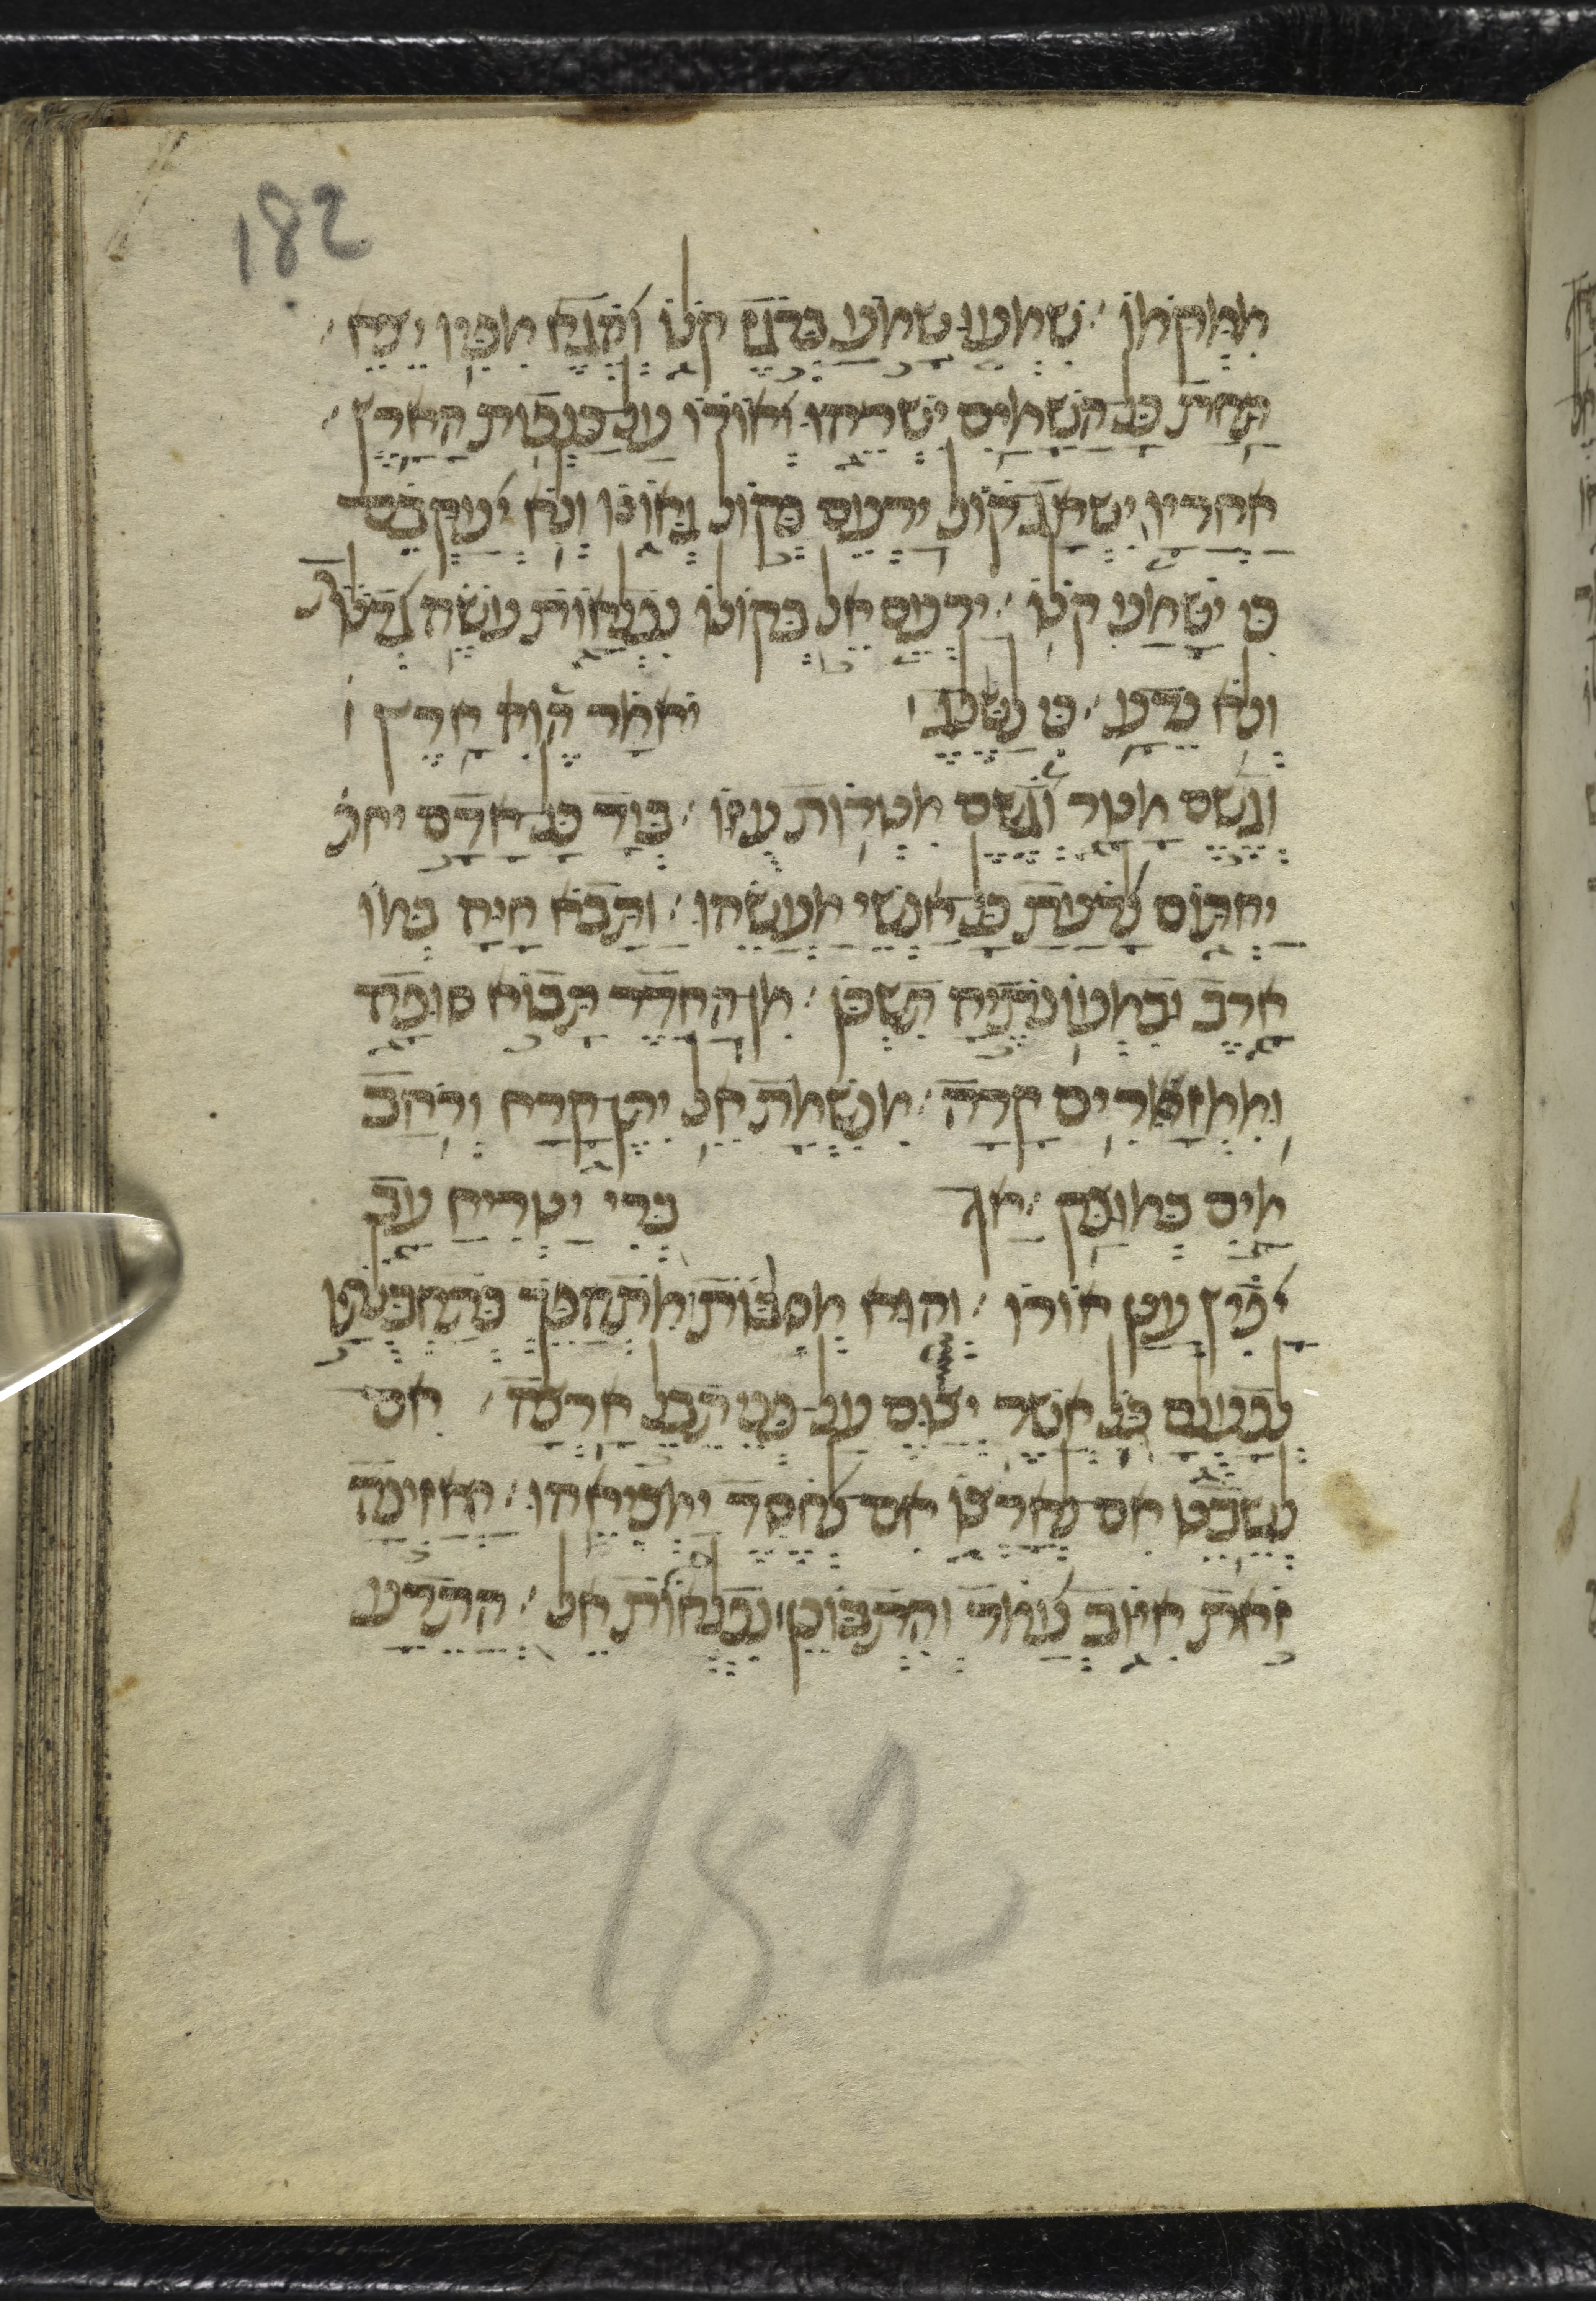 182
ממקמו׃ שמעו שמע ברגז קלו והגא מפיו יצא׃
תחת כל השמים ישרהו ואורו על כנפות הארץ׃
אחריו ישאג קול ירעם בקול גאונו ולא יעקבם
כי ישמע קלו׃ ירעם אל בקולו נפלאות עשה גדלות
ולא נדע׃ כי לשלג יאמר הוא ארץ
וגשם מטר וגשם מטרות עזו׃ ביד כל אדם יח
יחתום לדעת כל אנשי מעשהו׃ ותבא חיה במו
ארב ובמעונתיה תשכן׃ מן החדר תבוא סופה
וממזרים קרה׃ מנשמת אל יתן קרח ורחב
מים במוצק׃ אף ברי יטריח עב
יפיץ ענן אורו׃ והוא מסבות מתהפך בתחבולתו
לפעלם כל אשר יצום על פני תבל ארצה׃ אם
לשבט אם לארצו אם לחסד ימצאהו׃ האזינה
זאת איוב עמד והתבונן נפלאות אל׃ התדע
182